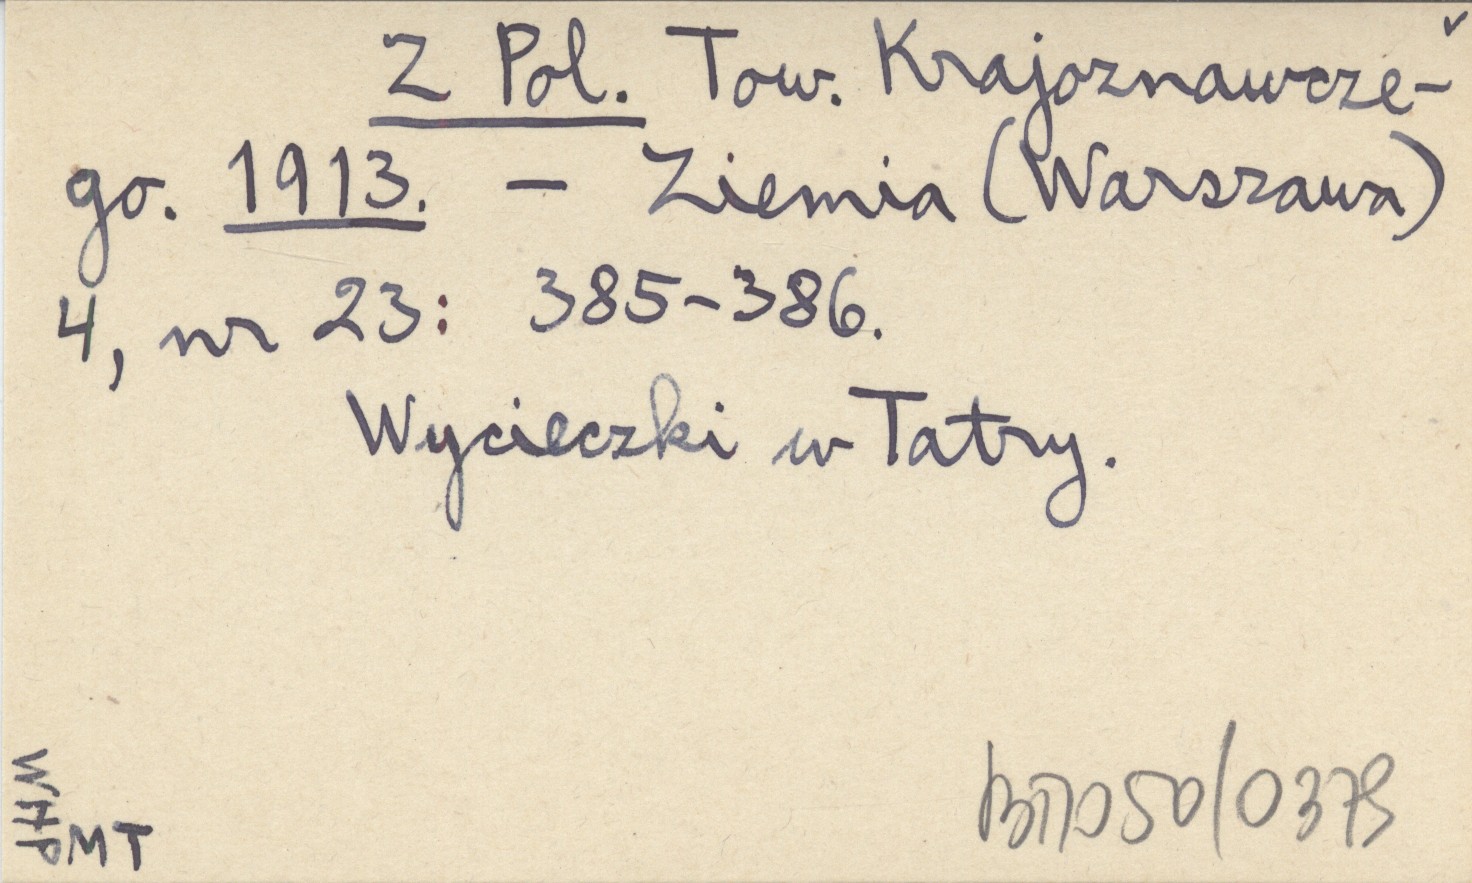 Z Pol. Tow. Krajoznawcze-
go. 1913. — Ziemia (Warszawa)
4, nr 23: 385-386.
Wycieczki w Tatry.
WHP
MT